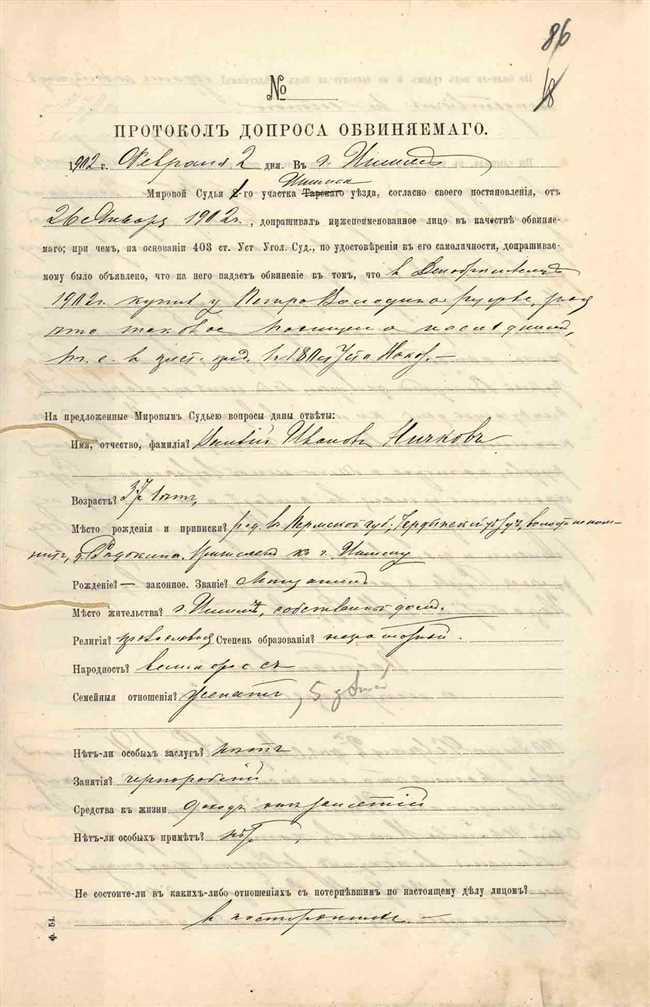 86
18
№
ПРОТОКОЛЪ ДОПРОСА ОБВИНЯЕМАГО.
1902 г. Февраля 2 дня. Въ г. Ишимѣ
Ишимск
Мировой Судья 1-го участка Тарскаго уѣзда, согласно своего постановленія, отъ
26 Января 1902 г., допрашивалъ нижепоименованное лицо въ качествѣ обвиняе-
маго; при чемъ, на основаніи 403 ст. Уст. Угол. Суд., по удостовѣреніи въ его самоличности, допрашивае-
мому было объявлено, что на него падаетъ обвиненіе въ томъ, что въ
1902 г. купилъ у Петра Володина
что таковое
т. е. въ прест. пред. 1 ч. 180 ст. Уст. о Наказ. —
На предложенные Мировымъ Судьею вопросы даны отвѣты:
Имя, отчество, фамилія? Ивановъ Ничковъ
Возрастъ? 37 лѣтъ,
Мѣсто рожденія и приписки? род. въ Пермской губ., Чердынскій уѣздъ, волости не пом-
нитъ, д. причисленъ къ г. Ишиму
Рожденіе? — законное. Званіе? Мѣщанинъ
Мѣсто жительства? г. Ишимъ, собственный домъ.
Религія? православная Степень образованія? неграмотный.
Народность? великороссъ
Семейныя отношенія? женатъ, 5 дѣтей
Нѣтъ-ли особыхъ заслугъ? нѣтъ
Занятія? чернорабочій
Средства къ жизни доходъ отъ занятій
Нѣтъ-ли особыхъ примѣтъ? нѣтъ,
Не состоите-ли въ какихъ-либо отношеніяхъ съ потерпѣвшимъ по настоящему дѣлу лицомъ?
въ постороннихъ. —
Ф. 54.